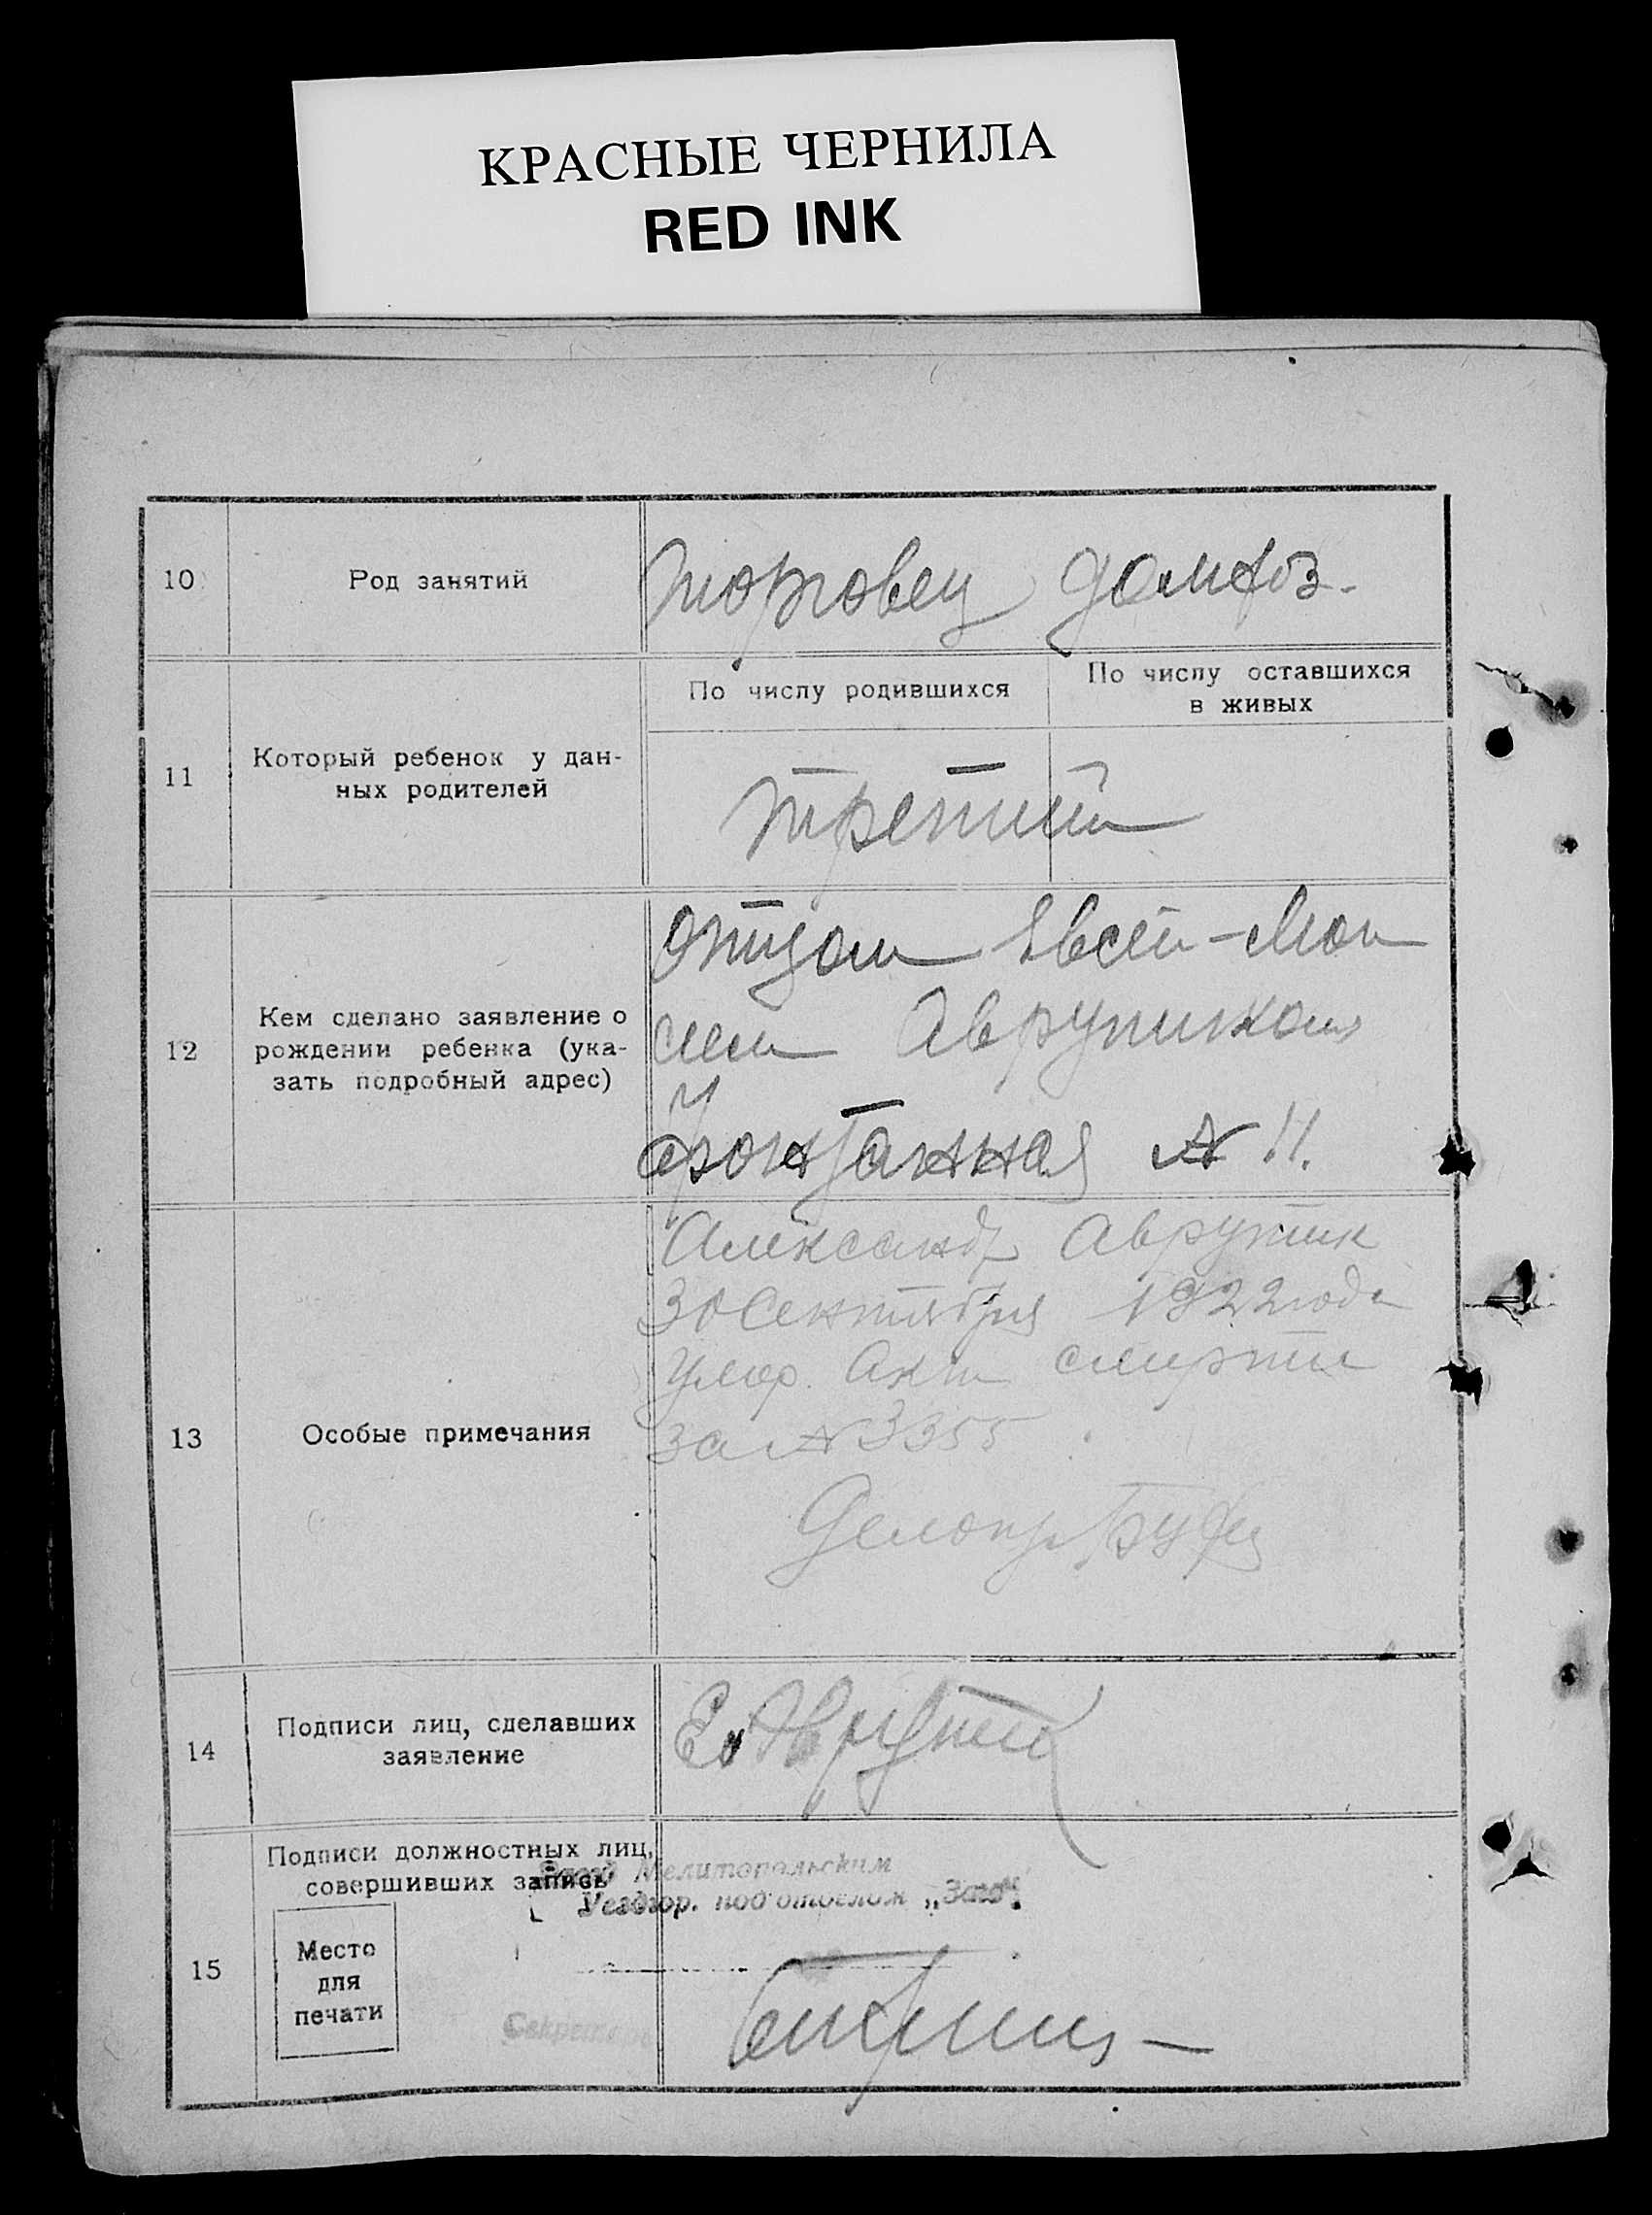 КРАСНЫЕ ЧЕРНИЛА
RED INK
10 Род занятий торговец домхоз.
11 Который ребенок у дан-
ных родителей
По числу родившихся
По числу оставшихся
в живых
третий
12 Кем сделано заявление о
рождении ребенка (ука-
зать подробный адрес)
Отцом Евсей-Мои
сеем Аврутиком
Фонтанная № 11.
13 Особые примечания
Александр Аврутик
30 Сентября 1922 года
умер. Акт смерти
за № 3355
Делопр
14 Подписи лиц, сделавших
заявление
Е. Аврутик
15 Подписи должностных лиц,
совершивших запись
Мелитопольским
Уездгор. подотделом „Загс“.
Место
для
печати
Секретарь